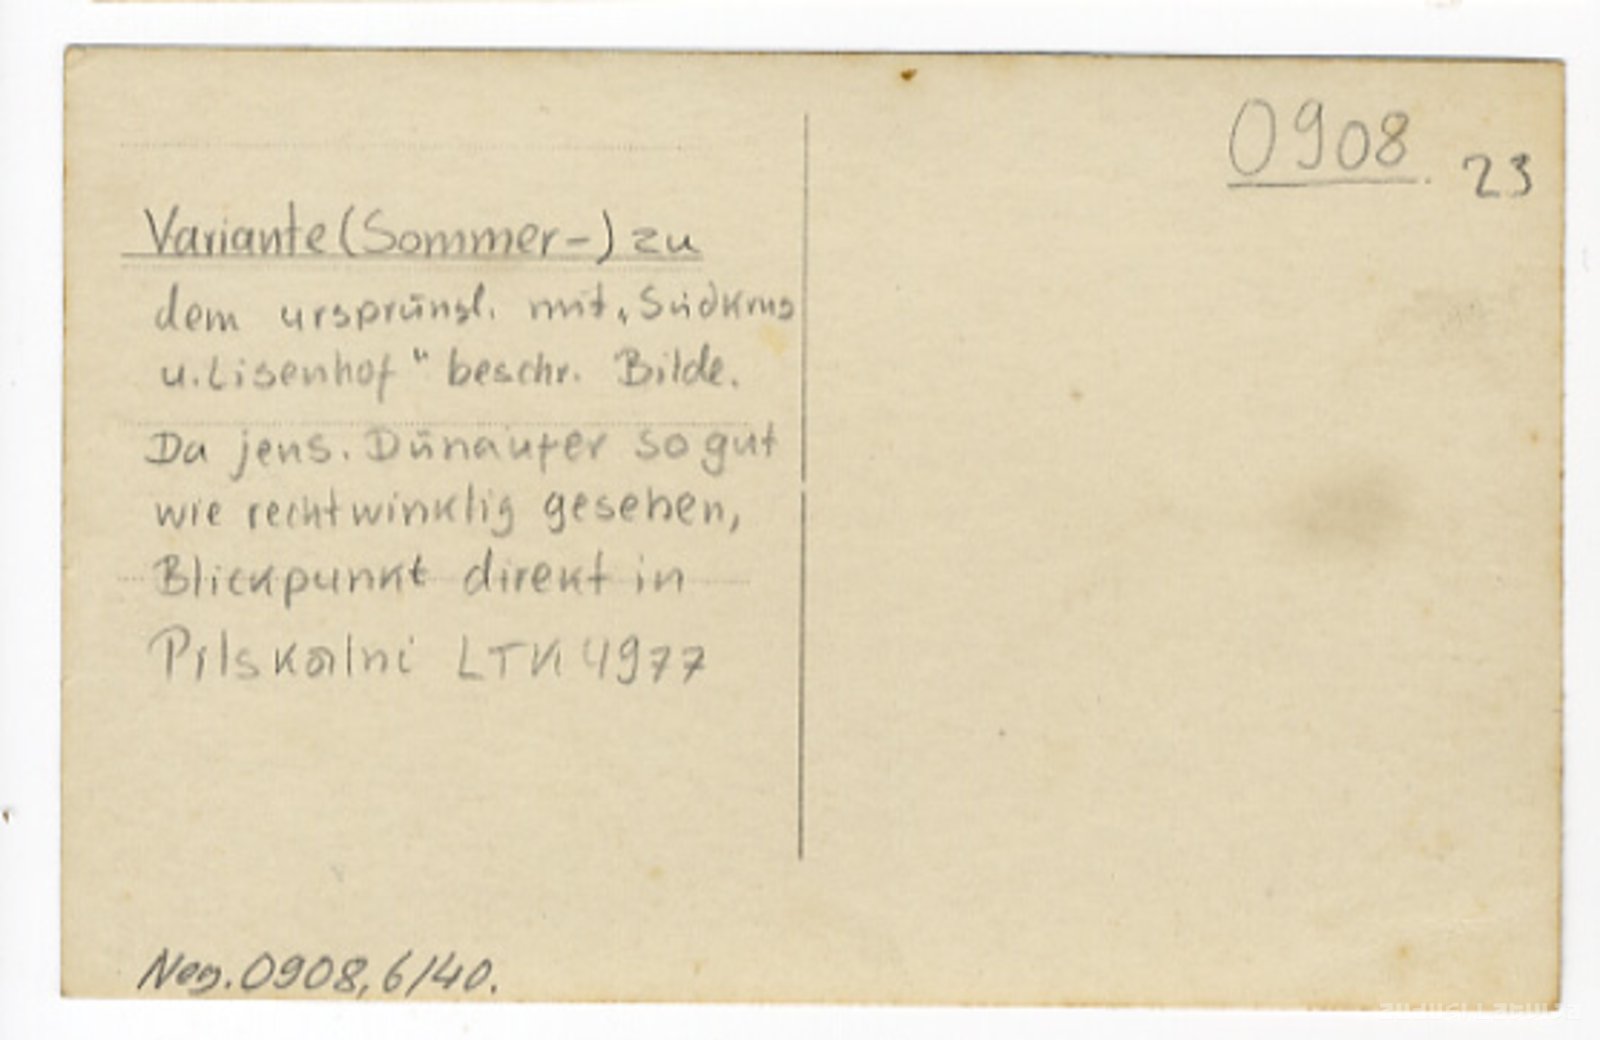 0908. 23
Variante (Sommer-) zu
dem ursprüngl. mit „Südkrug
u. Lisenhof" beschr. Bilde.
Da jens. Dünaufer so gut
wie rechtwinklig gesehen,
Blickpunkt direkt in
Pilskalni LTK 4977
Neg. 0908, 6/40.